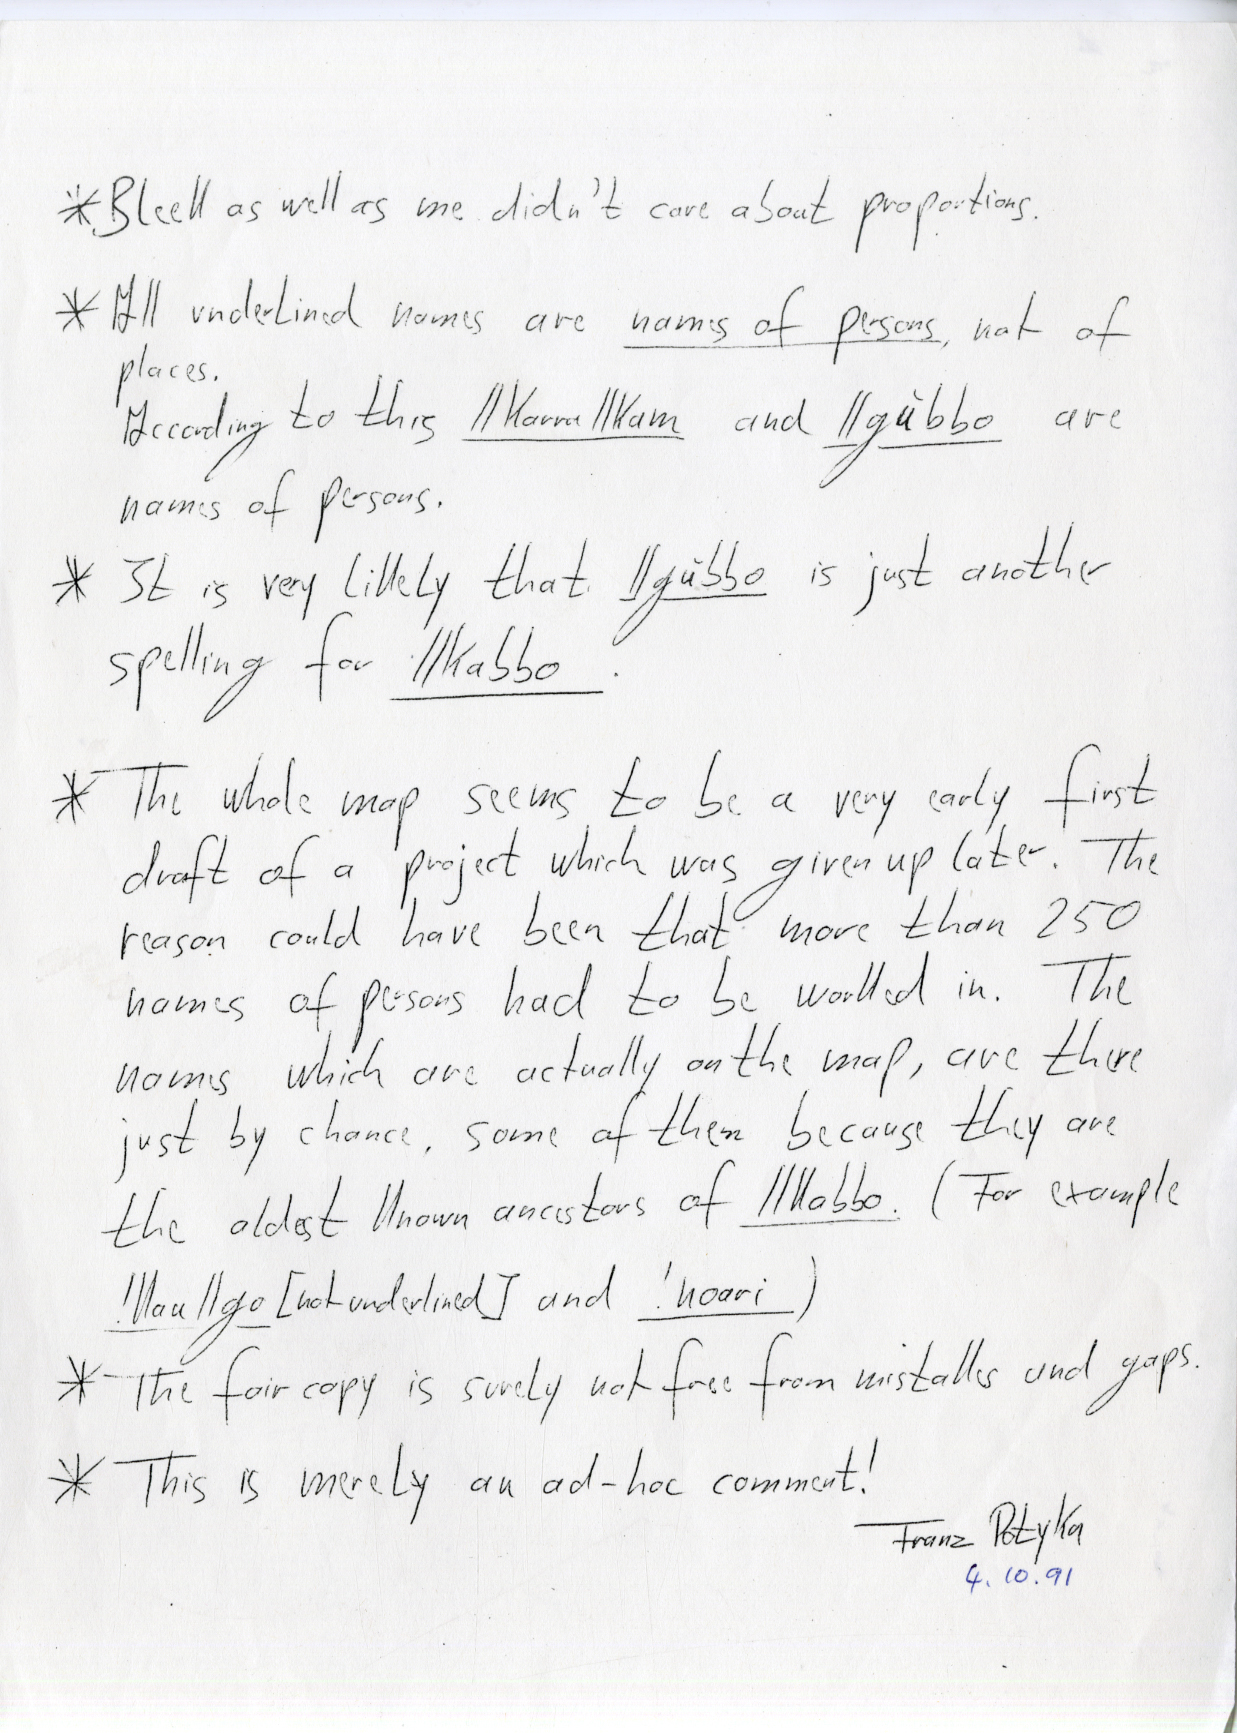 * Bleek as well as me didn't care about proportions.
* All underlined names are names of persons, not of
places.
According to this //Karra//Kam and //gùbbo are
names of persons.
* It is very likely that //gùbbo is just another
spelling for //Kabbo.
* The whole map seems to be a very early first
draft of a project which was given up later. The
reason could have been that more than 250
names of persons had to be worked in. The
names which are actually on the map, are there
just by chance, some of them because they are
the oldest known ancestors of //Kabbo. (For example
!kau//go [not underlined] and !hoari)
* The fair copy is surely not free from mistakes and gaps.
* This is merely an ad-hoc comment!
Franz Potyka
4.10.91